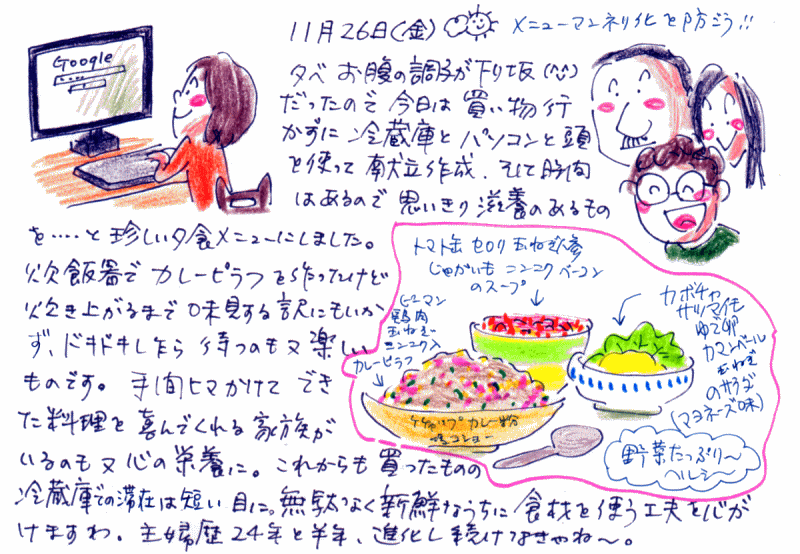 11月26日(金)
メニューマンネリ化を防ごう!!
Google
夕べ お腹の調子が下り坂
だったので 今日は 買い物 行
かずに 冷蔵庫と パソコンと 頭
を使って 献立作成、そして時間
はあるので 思いきり 滋養のあるもの
を‥‥と 珍しい夕食メニューにしました。
炊飯器で カレーピラフを作ったけど
炊き上がるまで 味見する訳にもいか
ず、ドキドキしながら 待つのも又 楽しい
ものです。 手間ヒマかけて でき
た料理を 喜んでくれる 家族が
いるのも又 心の 栄養に。 これからも 買ったものの
冷蔵庫での滞在は短い目に。無駄なく 新鮮なうちに 食材を使う工夫を心が
けますわ。 主婦歴24年と半年、進化し続けなきゃね〜。
トマト缶 セロリ 玉ねぎ 人参
じゃがいも ニンニク ベーコン
のスープ
ピーマン
鶏肉
玉ねぎ
ニンニク入
カレーピラフ
ケチャップ カレー粉
塩コショー
カボチャ
サツマイモ
ゆで卵
カマンベール
玉ねぎ
のサラダ
(マヨネーズ味)
野菜たっぷり〜
ヘルシー〜